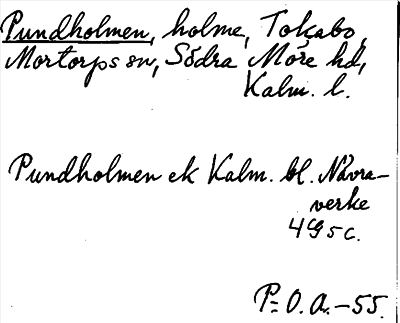 Pundholmen, holme, Tokabo,
Mortorps sn, Södra Möre hd,
Kalm. l.
Pundholmen ek Kalm. bl. Nävra-
verke
4G5c.
P= O.A.-55.